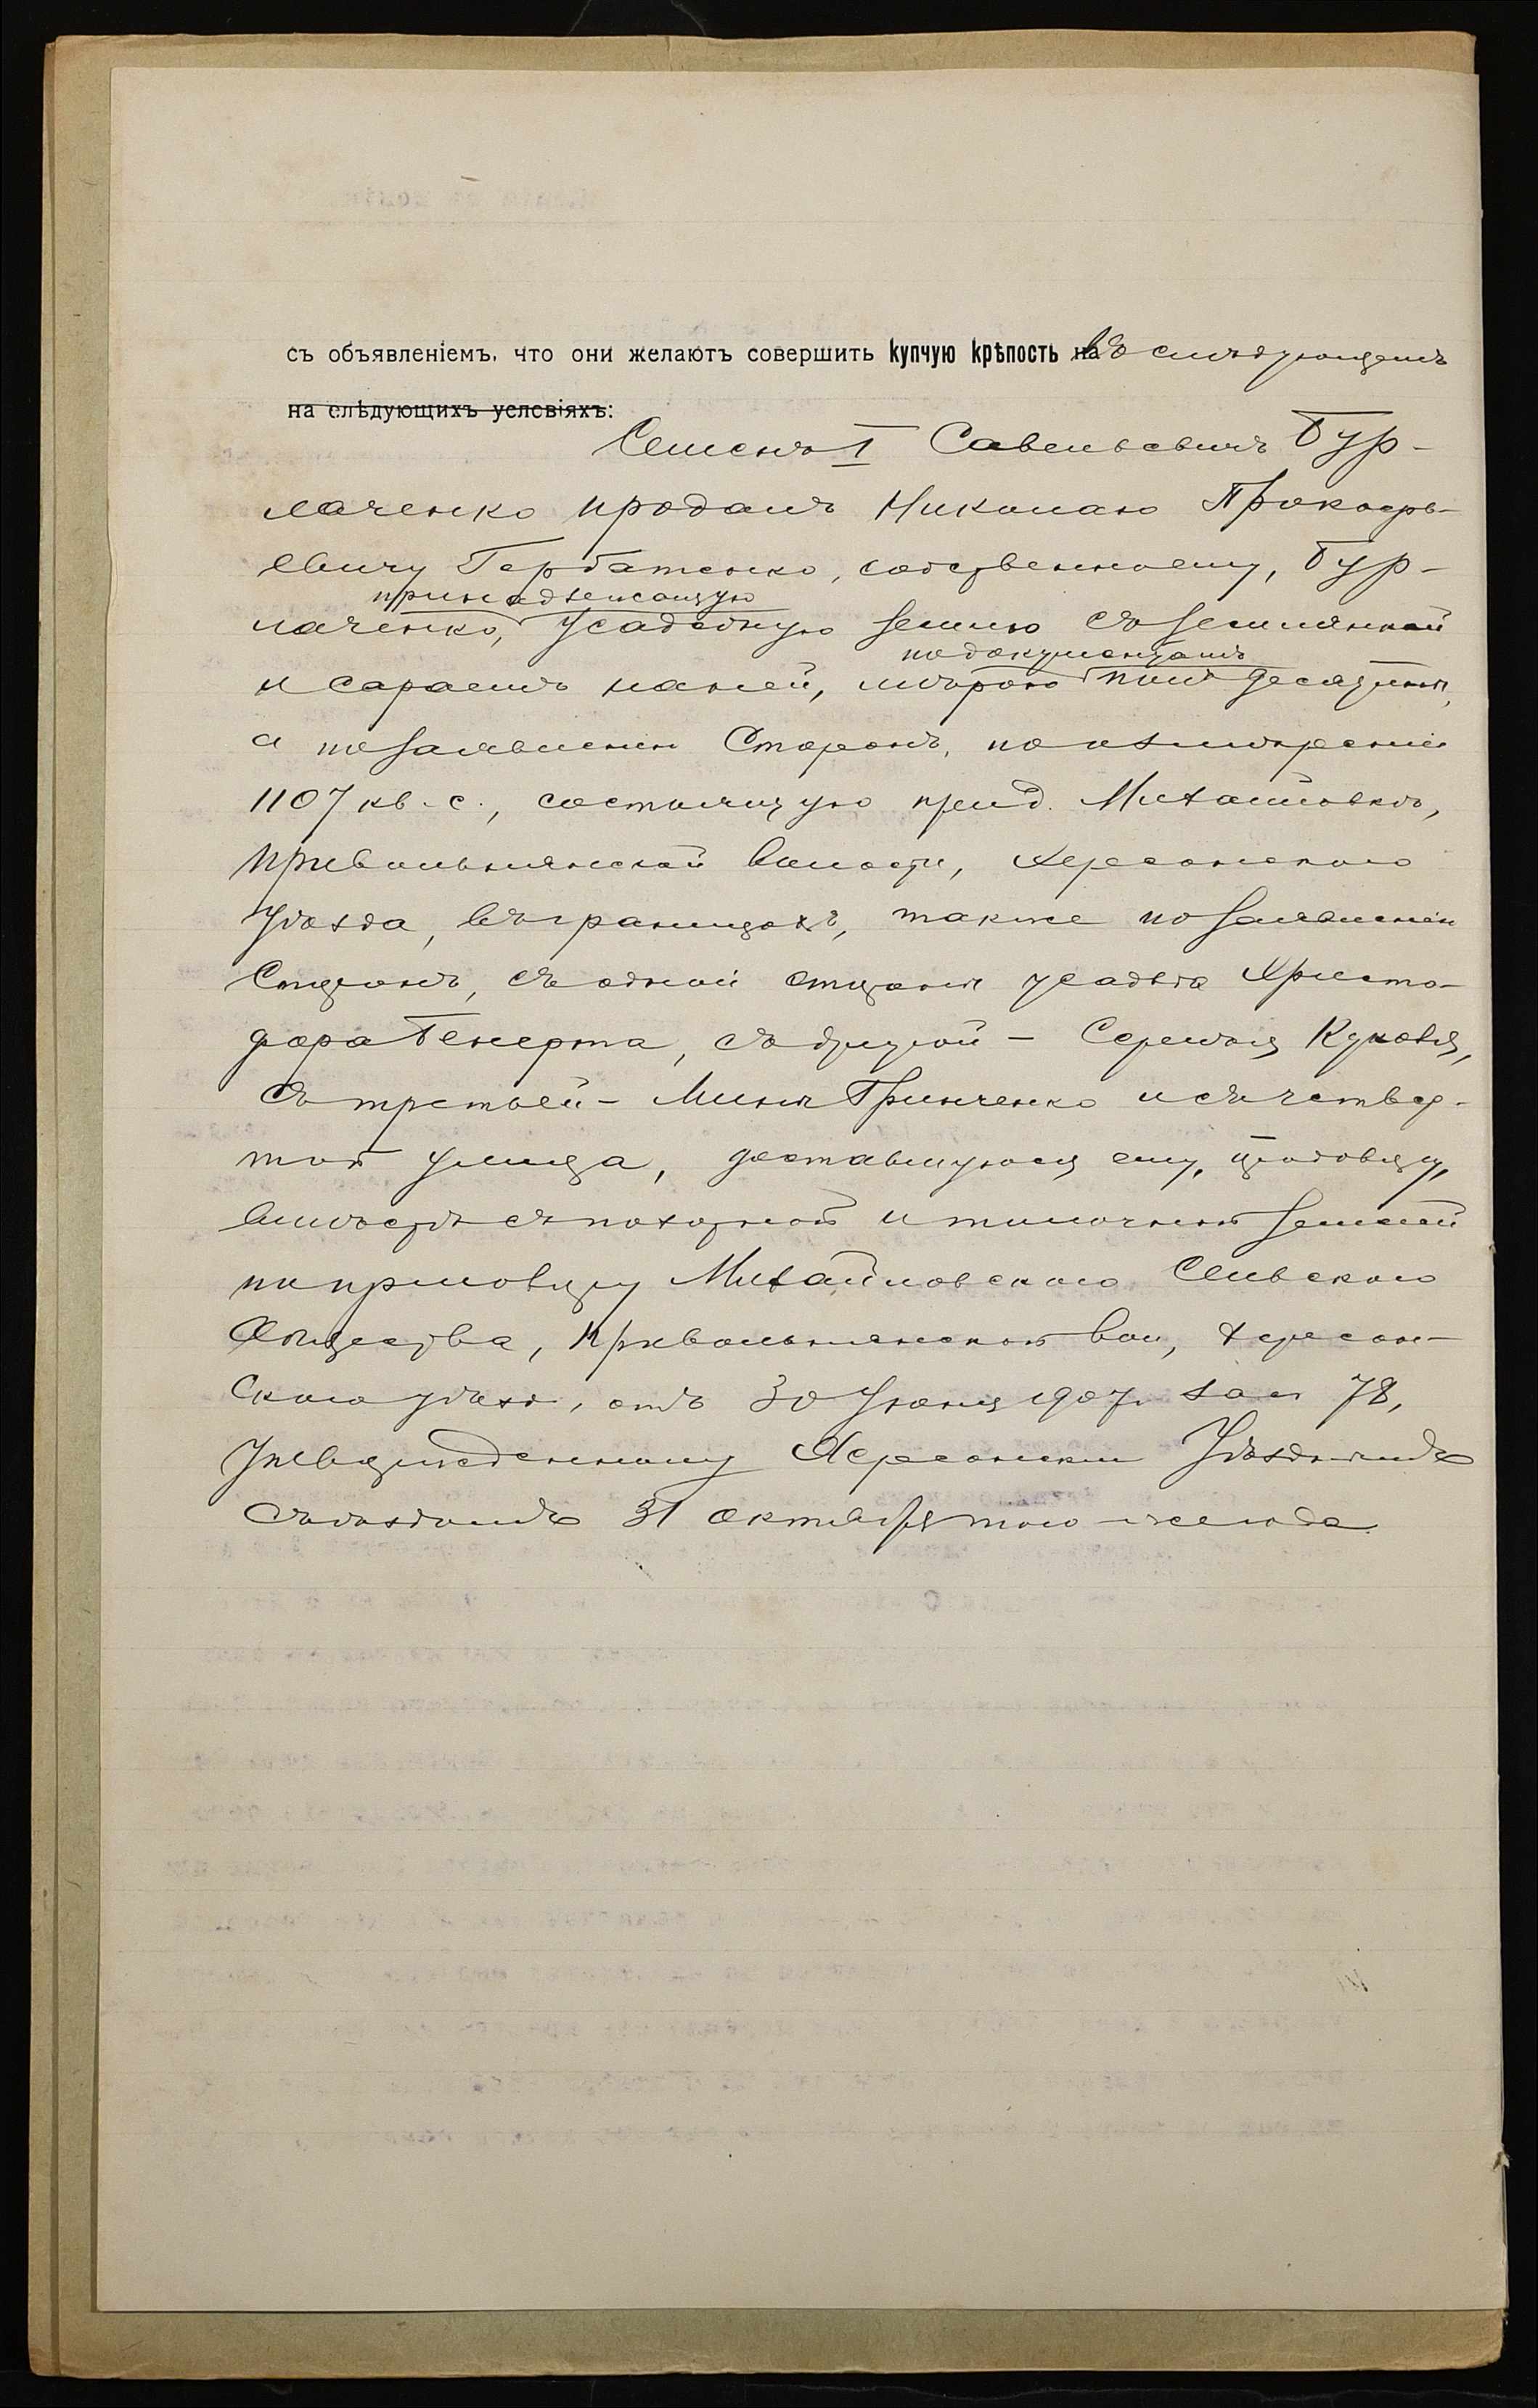 съ объявленіемъ, что они желаютъ совершить купчую крѣпость на въ слѣдующемъ
на слѣдующихъ условіяхъ:
Семенъ I Савельевичъ Бур-
лаченко продалъ Николаю Прокофь-
евичу Горбатенко, собственную, Бур-
принадлежащую
лаченко, усадебную землю съ землянкой
по документамъ
и сараемъ на ней, мѣрою пол десятины,
а по заявленію Сторонъ, по измѣренію
1107 кв. с., состоящую при д. Михайловкѣ,
Привольнянской волости, Херсонскаго
уѣзда, въ границахъ, также по заявленію
Сторонъ, съ одной стороны усадьба Христо-
фора Бенерта, съ другой - Сергѣя
съ третьей - Мины Гринченко и съ четвер-
той улица, доставшуюся ему, продавцу,
вмѣстѣ съ пахотной и толочной землей
по приговору Михайловскаго Сельскаго
Общества, Привольнянской вол., Херсон-
скаго уѣзда, отъ 30 Іюня 1907 г. за № 78,
утвержденному Херсонскимъ Уѣзднымъ
Съѣздомъ 31 Октября того-же года